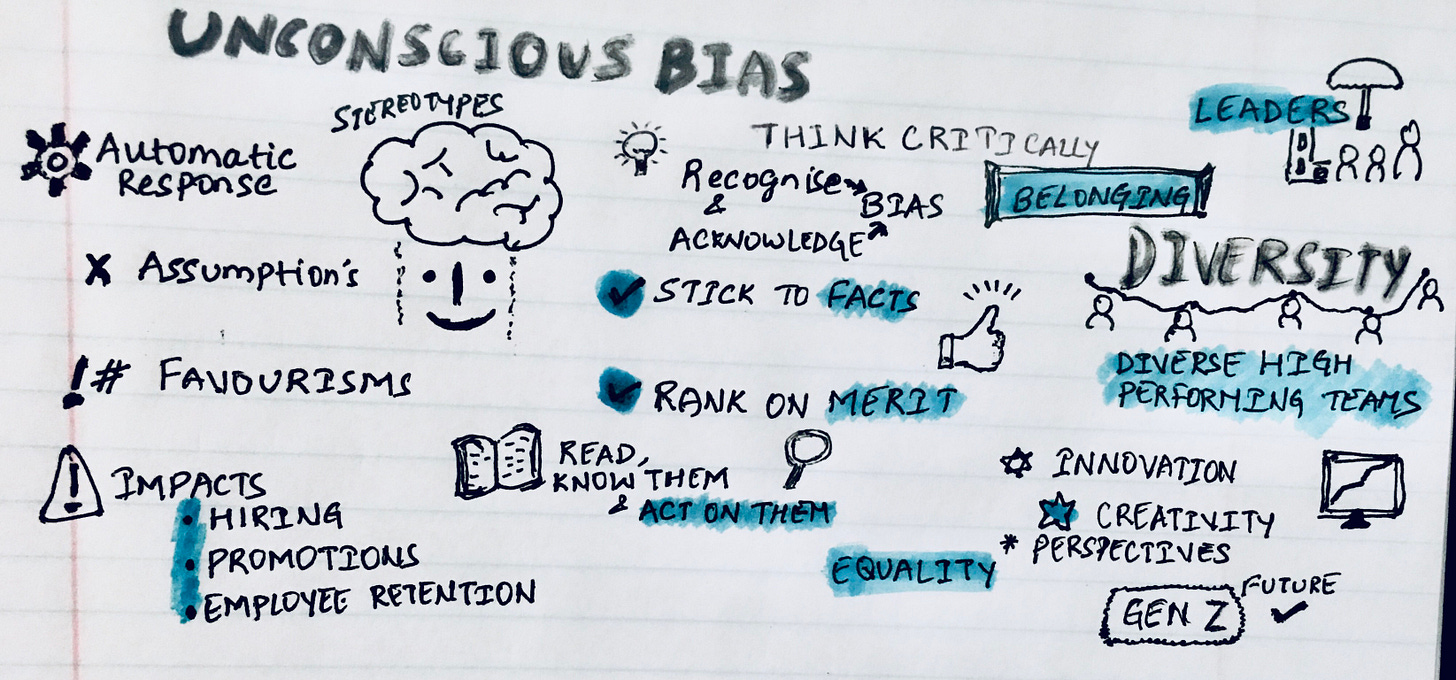 UNCONSCIOUS BIAS
STEREOTYPES
Automatic
Response
x Assumption's
!# FAVOURISMS
! IMPACTS
• HIRING
• PROMOTIONS
• EMPLOYEE RETENTION
THINK CRITICALLY
Recognise
&
ACKNOWLEDGE
BIAS
✓ STICK TO FACTS
✓ RANK ON MERIT
READ,
KNOW THEM
& ACT ON THEM
EQUALITY
LEADERS
BELONGING
DIVERSITY
DIVERSE HIGH
PERFORMING TEAMS
INNOVATION
CREATIVITY
* PERSPECTIVES
GEN Z
FUTURE
✓